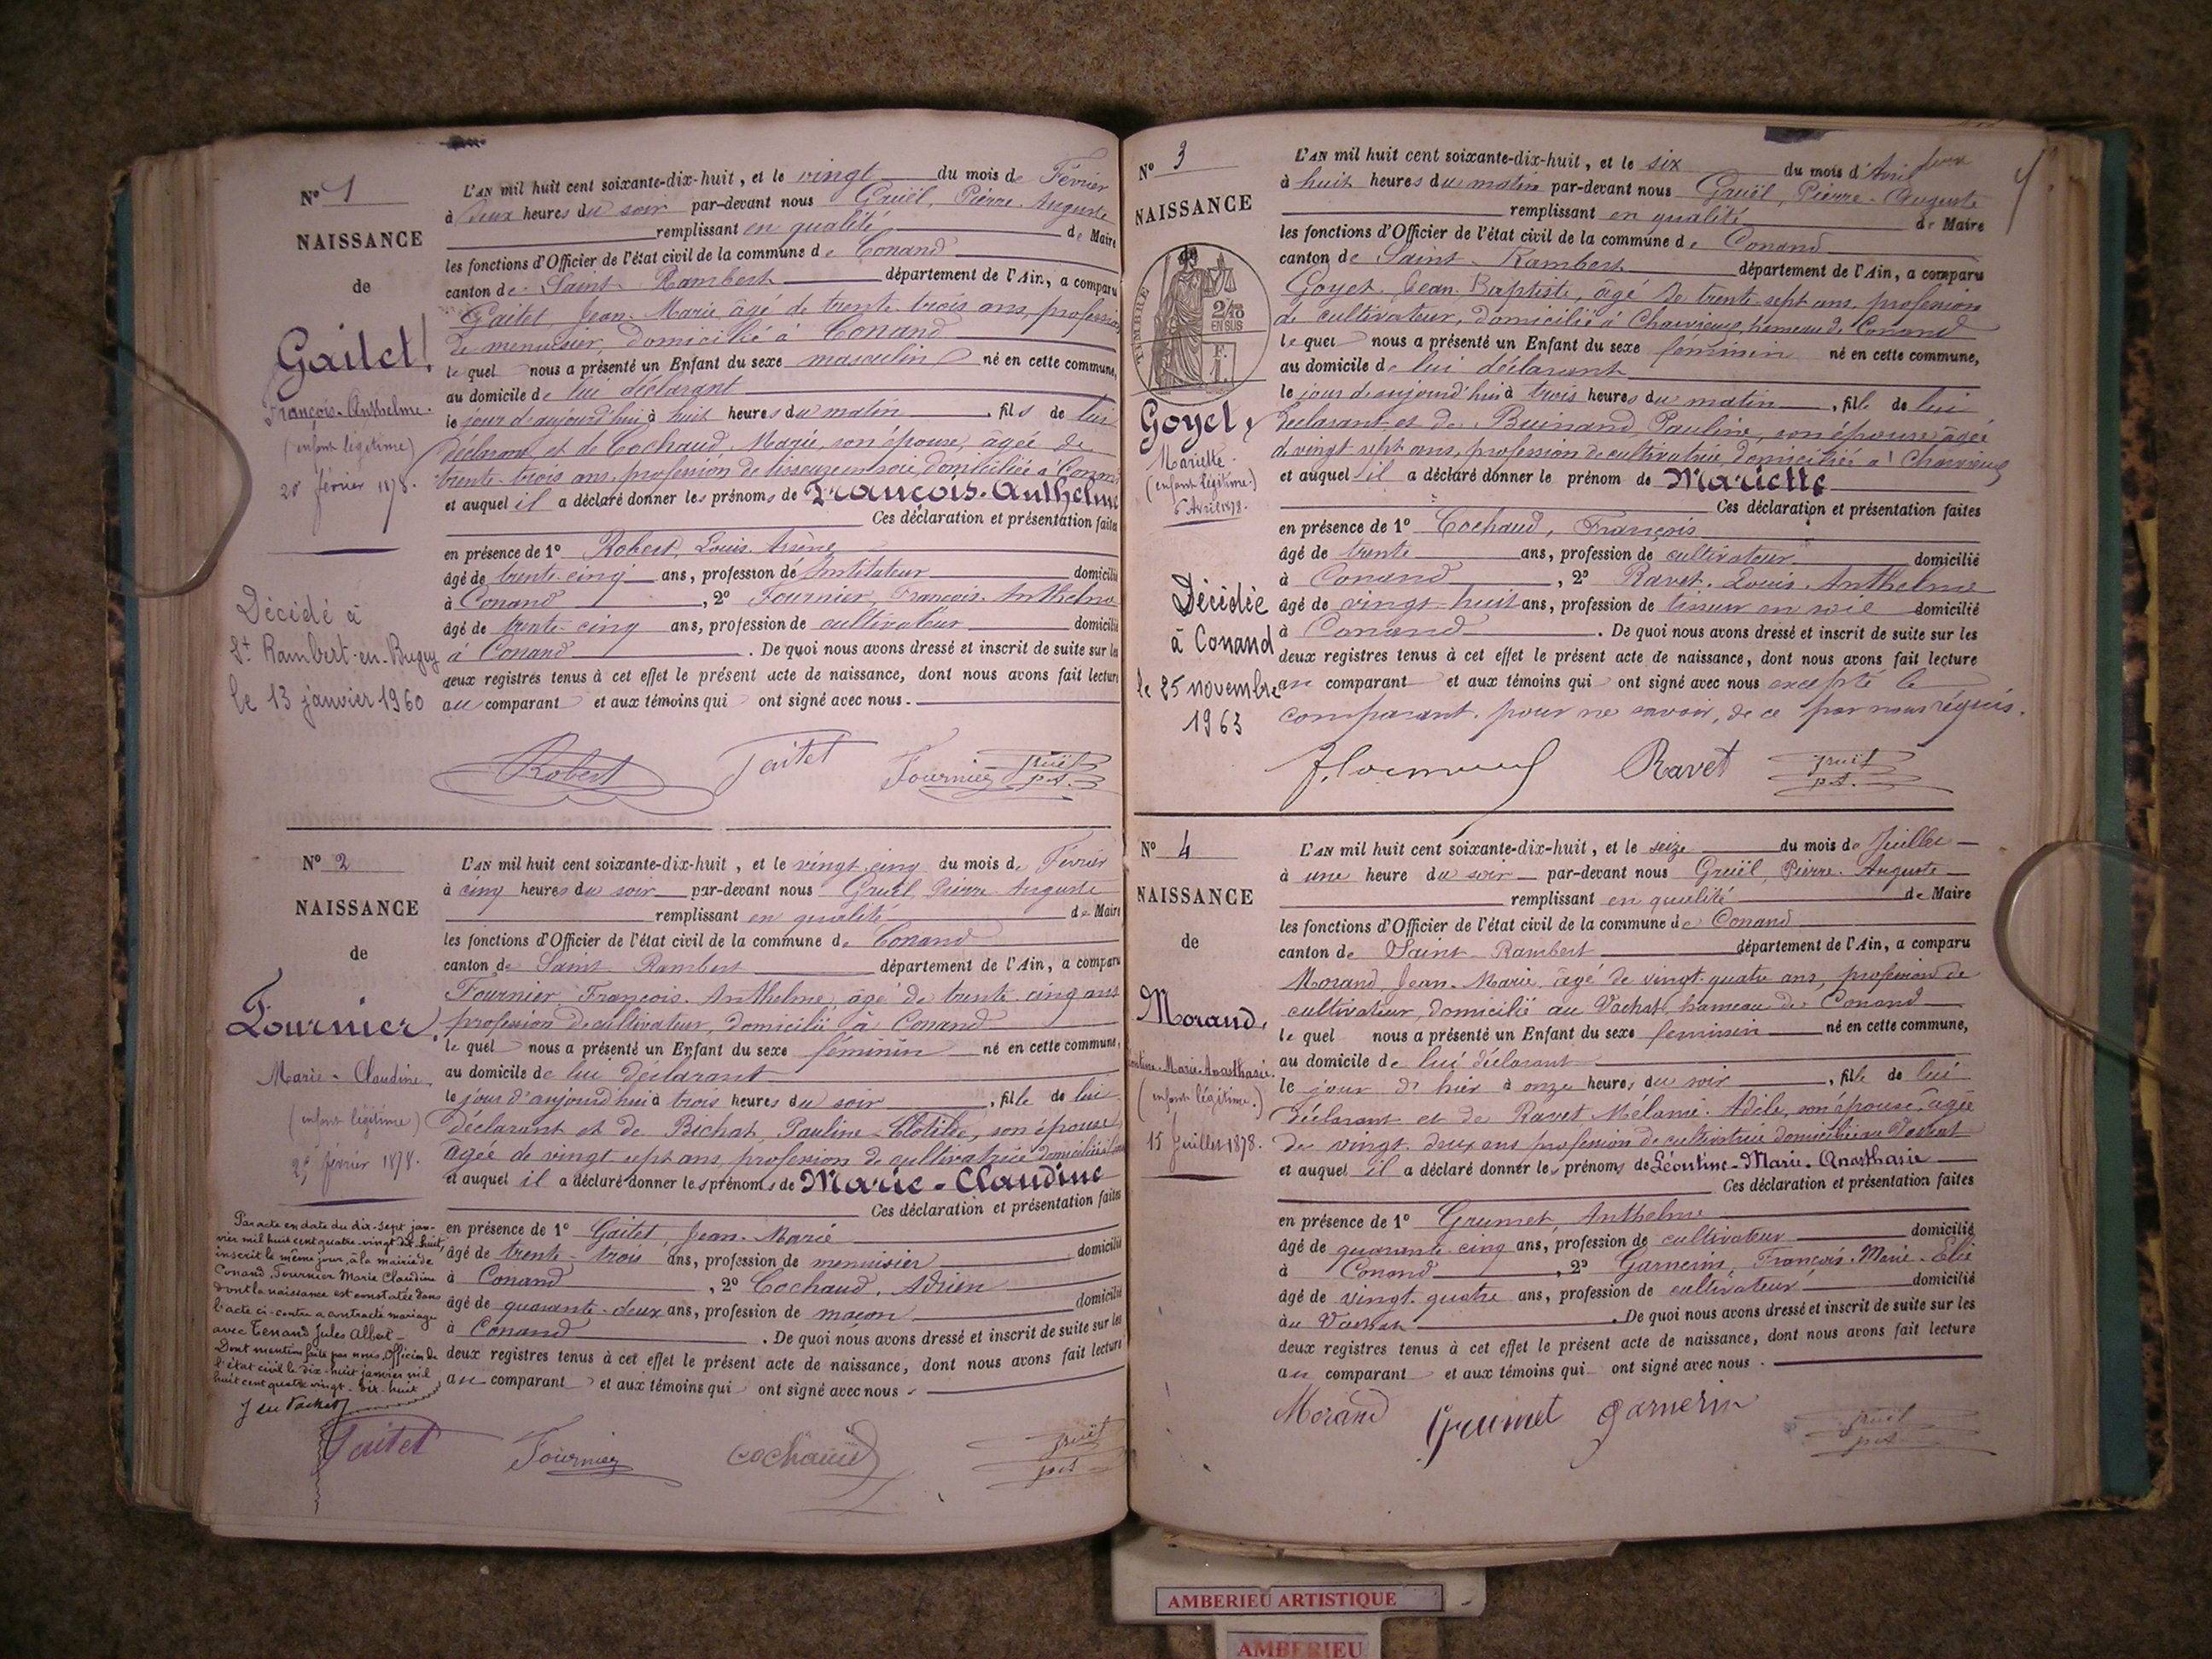 N° 1
NAISSANCE
de
Gaitet
François-Anthelme.
(enfant légitime)
20 février 1878.
Décédé à
St Rambert-en-Bugey
le 13 janvier 1960
L'AN mil huit cent soixante-dix-huit, et le vingt du mois de Février
à deux heures du soir par-devant nous Gruël, Pierre-Auguste
remplissant en qualité de Maire
les fonctions d'Officier de l'état civil de la commune de Conand
canton de Saint-Rambert département de l'Ain, a comparu
Gaitet, Jean-Marie, âgé de trente-trois ans, profession
de menuisier, domicilié à Conand
lequel nous a présenté un Enfant du sexe masculin né en cette commune,
au domicile de lui déclarant
le jour d'aujourd'hui à huit heures du matin, fils de lui
déclarant et de Cochaud, Marie, son épouse, âgée de
trente-trois ans, profession de tisseuse en soie, domiciliée à Conand
et auquel il a déclaré donner les prénoms de François-Anthelme
Ces déclaration et présentation faites
en présence de 1° Robert, Louis-Arsène
âgé de trente-cinq ans, profession de Instituteur domicilié
à Conand, 2° Fournier, François-Anthelme
âgé de trente-cinq ans, profession de cultivateur domicilié
à Conand. De quoi nous avons dressé et inscrit de suite sur les
deux registres tenus à cet effet le présent acte de naissance, dont nous avons fait lecture
au comparant et aux témoins qui ont signé avec nous.
Robert Gaitet Fournier Gruël
N° 2
NAISSANCE
de
Fournier
Marie-Claudine
(enfant légitime)
25 février 1878.
Par acte en date du dix-sept jan-
vier mil huit cent quatre-vingt dix-huit,
inscrit le même jour, à la mairie de
Conand, Fournier Marie Claudine
dont la naissance est constatée dans
l'acte ci-contre a contracté mariage
avec Tenand Jules Albert
Dont mention faite par nous, Officier de
l'état civil le dix-huit janvier mil
huit cent quatre vingt-dix-huit
L'AN mil huit cent soixante-dix-huit, et le vingt-cinq du mois de Février
à cinq heures du soir par-devant nous Gruël, Pierre-Auguste
remplissant en qualité de Maire
les fonctions d'Officier de l'état civil de la commune de Conand
canton de Saint-Rambert département de l'Ain, a comparu
Fournier, François-Anthelme, âgé de trente-cinq ans
profession de cultivateur, domicilié à Conand
lequel nous a présenté un Enfant du sexe féminin né en cette commune,
au domicile de lui déclarant
le jour d'aujourd'hui à trois heures du soir, fille de lui
déclarant et de Bichat, Pauline-Clotilde, son épouse
âgée de vingt sept ans, profession de cultivatrice domiciliée
et auquel il a déclaré donner les prénoms de Marie-Claudine
Ces déclaration et présentation faites
en présence de 1° Gaitet, Jean-Marie
âgé de trente-trois ans, profession de menuisier domicilié
à Conand, 2° Cochaud, Adrien
âgé de quarante-deux ans, profession de maçon domicilié
à Conand. De quoi nous avons dressé et inscrit de suite sur les
deux registres tenus à cet effet le présent acte de naissance, dont nous avons fait lecture
au comparant et aux témoins qui ont signé avec nous
Gaitet Fournier Cochaud Gruël
N° 3
NAISSANCE
de
TIMBRE
2/10
EN SUS
F.
1.
Goyet
Mariette
(enfant légitime)
6 Avril 1878.
Décédée
à Conand
le 25 novembre
1963
L'AN mil huit cent soixante-dix-huit, et le six du mois d'Avril
à huit heures du matin par-devant nous Gruël, Pierre-Auguste
remplissant en qualité de Maire
les fonctions d'Officier de l'état civil de la commune de Conand
canton de Saint-Rambert département de l'Ain, a comparu
Goyet, Jean-Baptiste, âgé de trente-sept ans, profession
de cultivateur, domicilié à Charvieux, hameau de Conand
lequel nous a présenté un Enfant du sexe féminin né en cette commune,
au domicile de lui déclarant
le jour d'aujourd'hui à trois heures du matin, fille de lui
déclarant et de Buinand, Pauline, son épouse âgée
de vingt sept ans, profession de cultivatrice, domiciliée à Charvieux
et auquel il a déclaré donner le prénom de Mariette
Ces déclaration et présentation faites
en présence de 1° Cochaud, François
âgé de trente ans, profession de cultivateur domicilié
à Conand, 2° Ravet, Louis-Anthelme
âgé de vingt-huit ans, profession de tisseur en soie domicilié
à Conand. De quoi nous avons dressé et inscrit de suite sur les
deux registres tenus à cet effet le présent acte de naissance, dont nous avons fait lecture
au comparant et aux témoins qui ont signé avec nous excepté le
comparant, pour ne savoir, de ce par nous requis.
Ravet Gruël
N° 4
NAISSANCE
de
Morand,
Léontine-Marie-Anasthasie.
(enfant légitime.)
15 Juillet 1878.
L'AN mil huit cent soixante-dix-huit, et le seize du mois de Juillet
à une heure du soir par-devant nous Gruël, Pierre-Auguste
remplissant en qualité de Maire
les fonctions d'Officier de l'état civil de la commune de Conand
canton de Saint-Rambert département de l'Ain, a comparu
Morand, Jean-Marie, âgé de vingt-quatre ans, profession de
cultivateur, domicilié au Vachat, hameau de Conand
lequel nous a présenté un Enfant du sexe féminin né en cette commune,
au domicile de lui déclarant
le jour d'hier à onze heures du soir, fille de lui
déclarant et de Ravet Mélanie-Adèle, son épouse, âgée
de vingt-deux ans profession de cultivatrice domiciliée au Vachat
et auquel il a déclaré donner les prénoms de Léontine-Marie-Anasthasie
Ces déclaration et présentation faites
en présence de 1° Grumet, Anthelme
âgé de quarante-cinq ans, profession de cultivateur domicilié
à Conand, 2° Garnerin, François-Marie-Elie
âgé de vingt-quatre ans, profession de cultivateur domicilié
au Vachat. De quoi nous avons dressé et inscrit de suite sur les
deux registres tenus à cet effet le présent acte de naissance, dont nous avons fait lecture
au comparant et aux témoins qui ont signé avec nous.
Morand Grumet Garnerin Gruël
AMBERIEU ARTISTIQUE
AMBERIEU